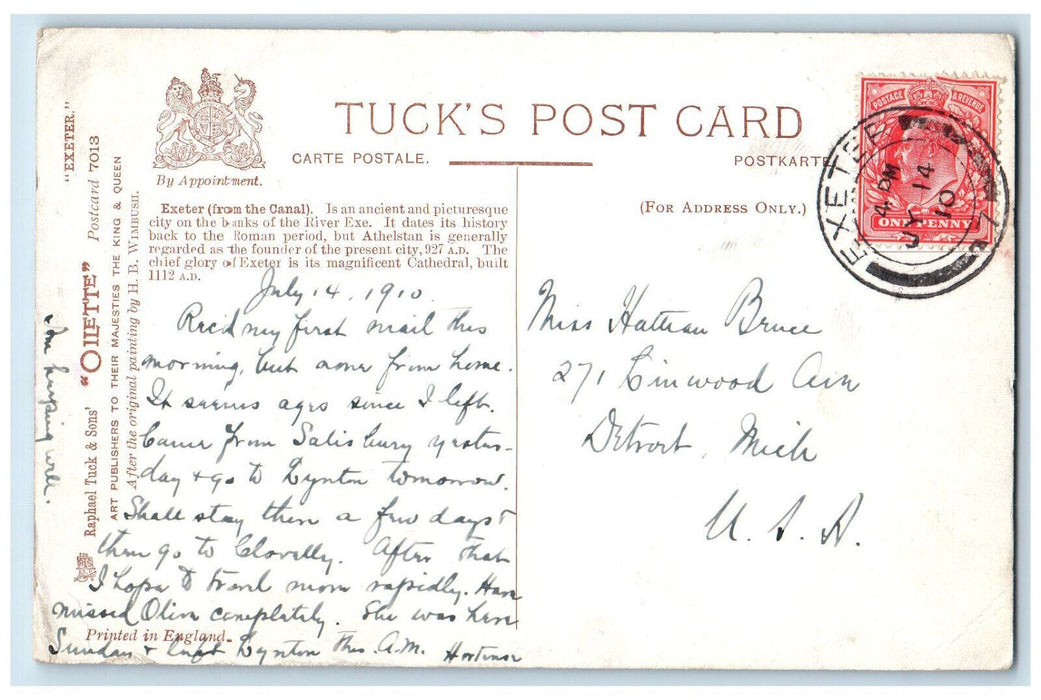 TUCK'S POST CARD
CARTE POSTALE.
POSTKARTE
By Appointment.
(FOR ADDRESS ONLY.)
Exeter (from the Canal). Is an ancient and picturesque
city on the banks of the River Exe. It dates its history
back to the Roman period, but Athelstan is generally
regarded as the founder of the present city, 927 A.D. The
chief glory of Exeter is its magnificent Cathedral, built
1112 A.D.
"EXETER."
Raphael Tuck & Sons' "OILETTE" Postcard 7013
ART PUBLISHERS TO THEIR MAJESTIES THE KING & QUEEN
After the original painting by H. B. WIMBUSH.
July 14, 1910.
Rec'd my first mail this
morning, but none from home.
It seems ages since I left.
Came from Salisbury yester-
day & go to Lynton tomorrow.
Shall stay there a few days &
then go to Clovelly. After that
I hope to travel more rapidly. Have
missed Olive completely. She was here
Printed in England.
Sunday & left Lynton this A.M. Hortense
Am keeping well.
Miss Bruce
271 Linwood Ave
Detroit, Mich
U. S. A.
POSTAGE & REVENUE
ONE PENNY
EXETER
4 PM
JY 14
10